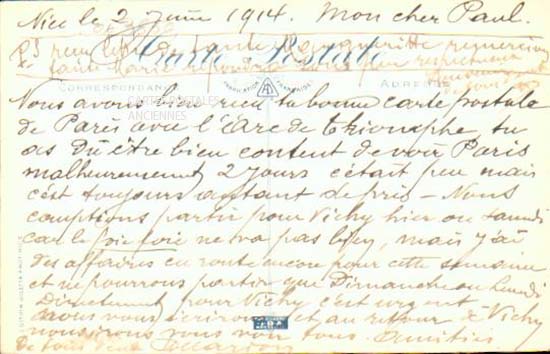 Nice le 2 Juin 1914. Mon cher Paul.
reçu lettre de tante Marguerite
tante Marie
Carte Postale
CORRESPONDANCE
FABRICATION FRANÇAISE
ADRESSE
CARTES POSTALES
ANCIENNES
Nous avons bien reçu ta bonne carte postale
de Paris avec l'Arc de triomphe, tu
as dû être bien content de voir Paris
malheureusement 2 jours c'était peu mais
c'est toujours autant de pris - Nous
comptions partir pour Vichy hier ou Lundi
car le foie foie ne va pas bien, mais j'ai
des affaires en route encore pour cette semaine
et ne pourrons partir que Dimanche ou Lundi
Directement pour Vichy c'est urgent
nous vous écrirons et au retour de Vichy
nous irons vous voir tous.